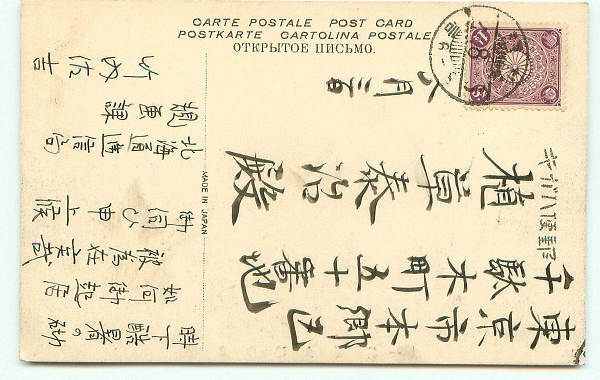 CARTE POSTALE POST CARD
POSTKARTE CARTOLINA POSTALE
ОТКРЫТОЕ ПИСЬМО.
MADE IN JAPAN
東京市本郷区
千駄木町五十番地
植草泰治殿
六月三日
時下酷暑の砌
如何御起居
被為在
御伺ひ申上候
北海道逓信局
規画課
竹内